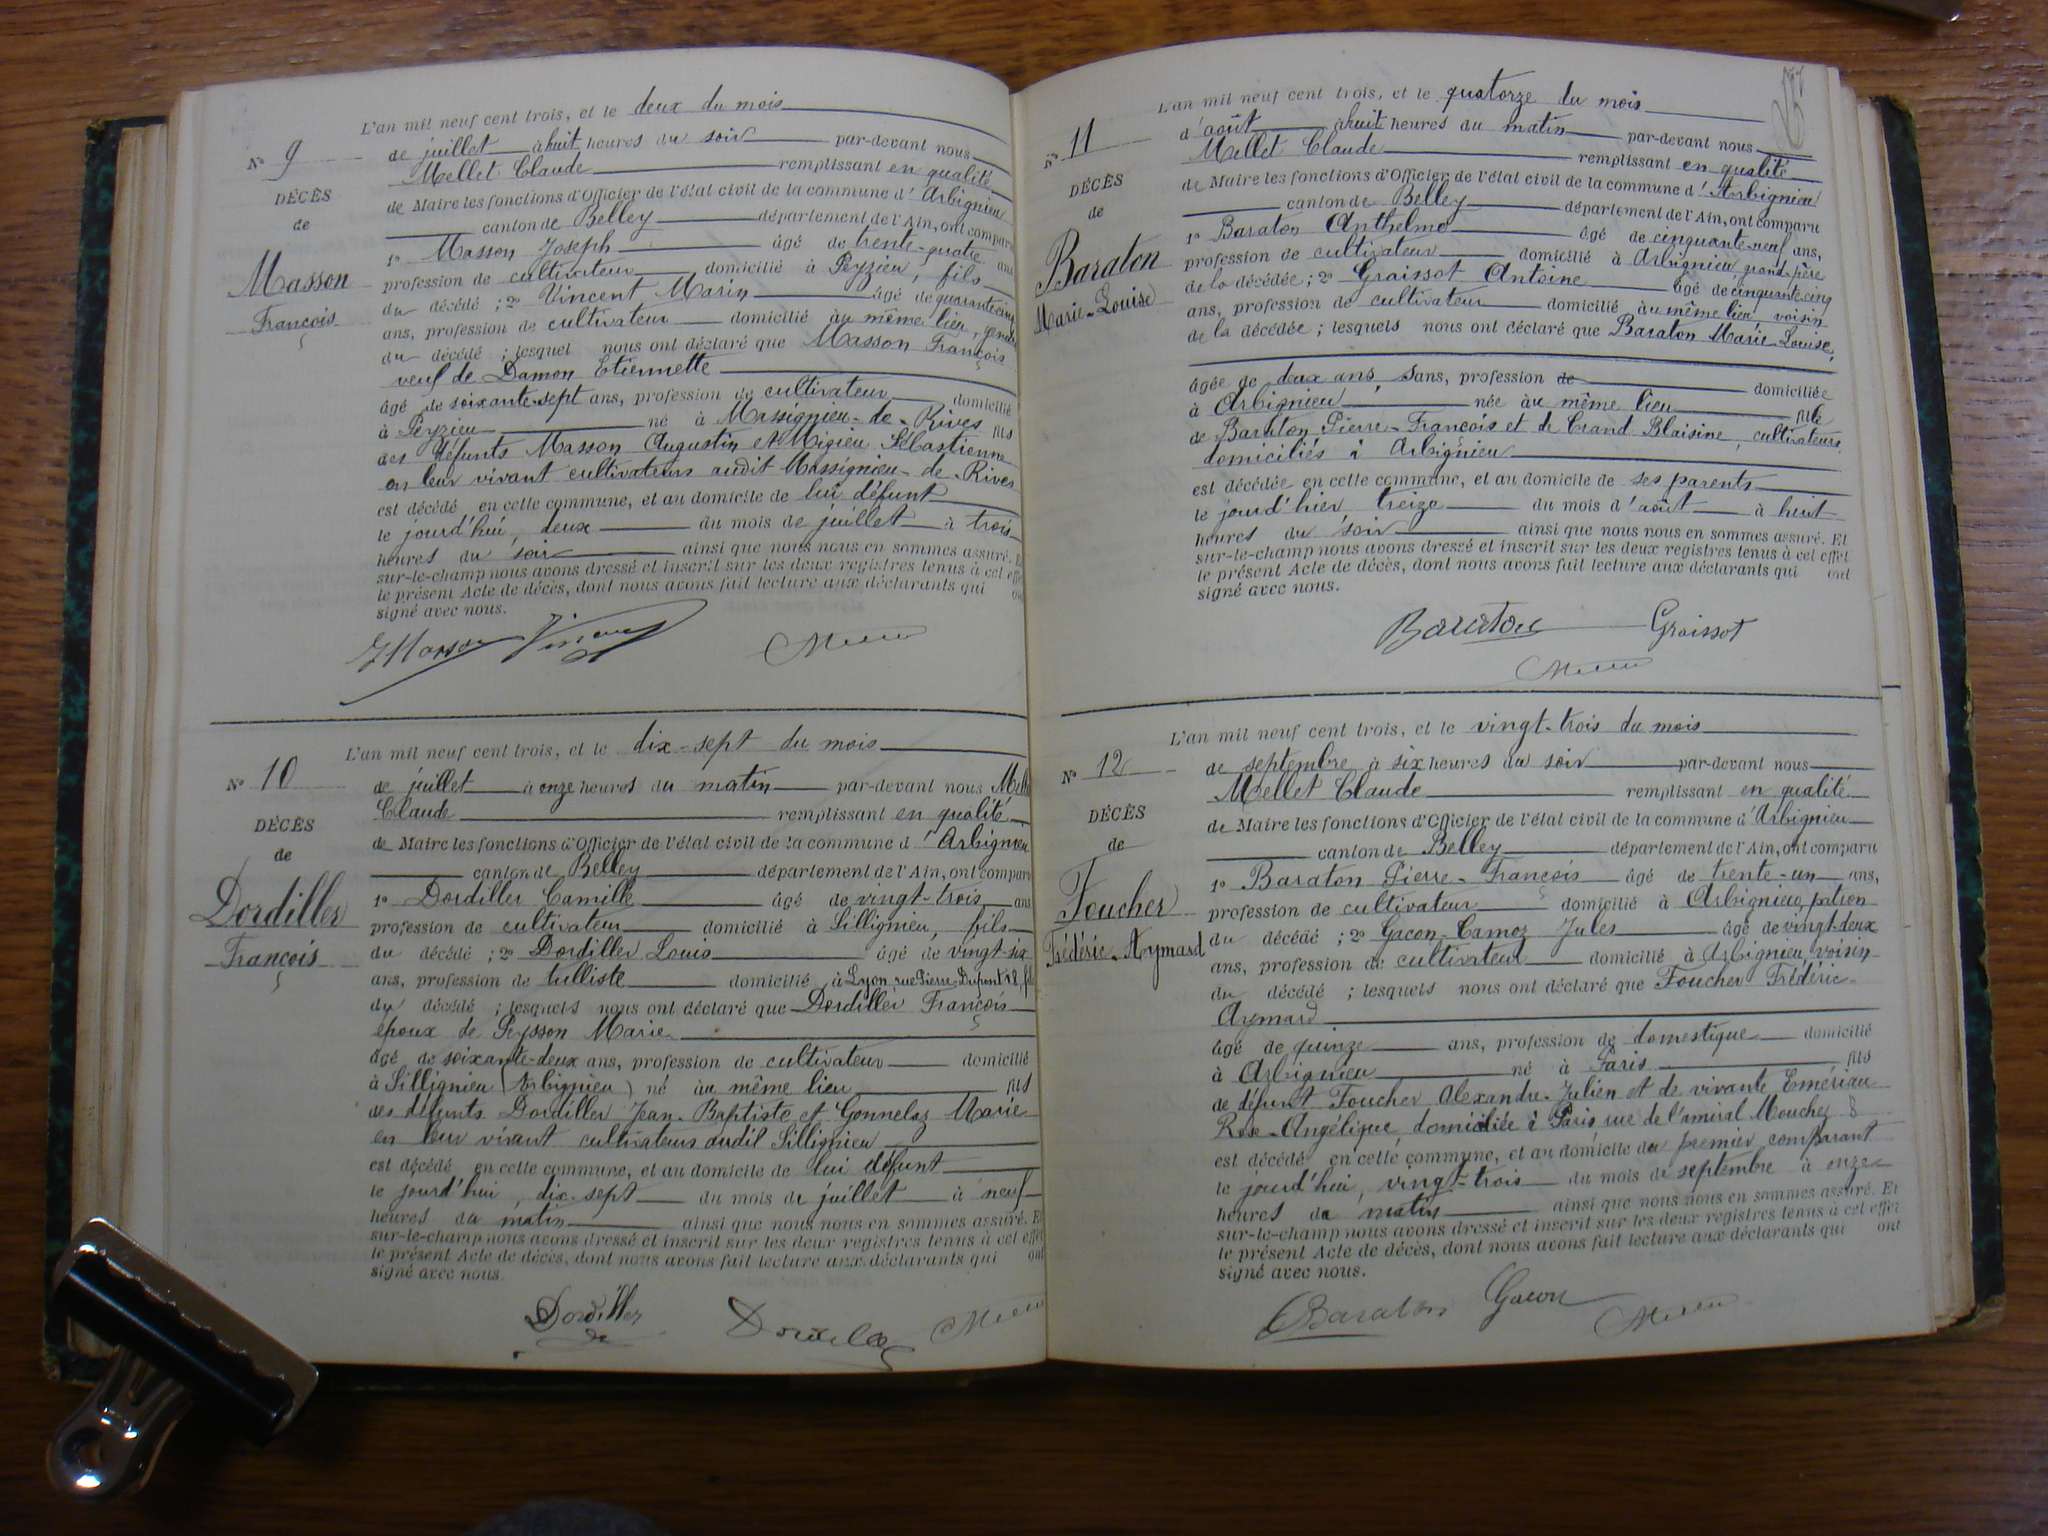 L'an mil neuf cent trois, et le deux du mois
N° 9
de juillet à huit heures du soir par-devant nous
Mellet Claude remplissant en qualité
DÉCÈS
de Maire les fonctions d'Officier de l'état civil de la commune d'Arbignieu
de
canton de Belley département de l'Ain, ont comparu
Masson
François
1° Masson Joseph âgé de trente-quatre ans
profession de cultivateur domicilié à Peyzieu, fils
du décédé ; 2° Vincent Marin âgé de quarante-cinq
ans, profession de cultivateur domicilié au même lieu, gendre
du décédé ; lesquel nous ont déclaré que Masson François
veuf de Damon Etiennette
âgé de soixante-sept ans, profession de cultivateur domicilié
à Peyzieu né à Massignieu-de-Rives fils
des défunts Masson Augustin et Migieu Sébastienne
en leur vivant cultivateurs audit Massignieu-de-Rives
est décédé en cette commune, et au domicile de lui défunt
le jourd'hui, deux du mois de juillet à trois
heures du soir ainsi que nous nous en sommes assuré. Et
sur-le-champ nous avons dressé et inscrit sur les deux registres tenus à cet effet
le présent Acte de décès, dont nous avons fait lecture aux déclarants qui ont
signé avec nous.
JMasson Vincent
L'an mil neuf cent trois, et le dix-sept du mois
N° 10
de juillet à onze heures du matin par-devant nous Mellet
Claude remplissant en qualité
DÉCÈS
de Maire les fonctions d'Officier de l'état civil de la commune d'Arbignieu
de
canton de Belley département de l'Ain, ont comparu
Dordiller
François
1° Dordiller Camille âgé de vingt-trois ans
profession de cultivateur domicilié à Sillignieu, fils
du décédé ; 2° Dordiller Louis âgé de vingt-six
ans, profession de tulliste domicilié à Lyon, rue Pierre-Dupont 18, fils
du décédé ; lesquels nous ont déclaré que Dordiller François
époux de Peysson Marie
âgé de soixante-deux ans, profession de cultivateur domicilié
à Sillignieu (Arbignieu) né au même lieu fils
des défunts Dordiller Jean-Baptiste et Gonnelaz Marie
en leur vivant cultivateurs audit Sillignieu
est décédé en cette commune, et au domicile de lui défunt
le jourd'hui, dix-sept du mois de juillet à neuf
heures du matin ainsi que nous nous en sommes assuré. Et
sur-le-champ nous avons dressé et inscrit sur les deux registres tenus à cet effet
le présent Acte de décès, dont nous avons fait lecture aux déclarants qui ont
signé avec nous.
Dordiller
L'an mil neuf cent trois, et le quatorze du mois
N° 11
d'août à huit heures du matin par-devant nous
Mellet Claude remplissant en qualité
DÉCÈS
de Maire les fonctions d'Officier de l'état civil de la commune d'Arbignieu
de
canton de Belley département de l'Ain, ont comparu
Baraton
Marie-Louise
1° Baraton Anthelme âgé de cinquante-neuf ans,
profession de cultivateur domicilié à Arbignieu grand-père
de la décédée ; 2° Graissot Antoine âgé de cinquante-cinq
ans, profession de cultivateur domicilié au même lieu voisin
de la décédée ; lesquels nous ont déclaré que Baraton Marie-Louise,
âgée de deux ans, sans, profession de domiciliée
à Arbignieu née au même lieu fille
de Baraton Pierre-François et de Crand Blaisine, cultivateurs
domiciliés à Arbignieu
est décédée en cette commune, et au domicile de ses parents
le jourd'hier, treize du mois d'août à huit
heures du soir ainsi que nous nous en sommes assuré. Et
sur-le-champ nous avons dressé et inscrit sur les deux registres tenus à cet effet
le présent Acte de décès, dont nous avons fait lecture aux déclarants qui ont
signé avec nous.
Baraton Graissot
L'an mil neuf cent trois, et le vingt-trois du mois
N° 12
de septembre à six heures du soir par-devant nous
Mellet Claude remplissant en qualité
DÉCÈS
de Maire les fonctions d'Officier de l'état civil de la commune d'Arbignieu
de
canton de Belley département de l'Ain, ont comparu
Foucher
Frédéric-Aymard
1° Baraton Pierre-François âgé de trente-un ans,
profession de cultivateur domicilié à Arbignieu, patron
du décédé ; 2° Gacon-Camoz Jules âgé de vingt-deux
ans, profession de cultivateur domicilié à Arbignieu, voisin
du décédé ; lesquels nous ont déclaré que Foucher Frédéric-
Aymard
âgé de quinze ans, profession de domestique domicilié
à Arbignieu né à Paris fils
de défunt Foucher Alexandre-Julien et de vivante Emériau
Rose-Angélique, domiciliée à Paris rue de l'amiral Mouchez 8
est décédé en cette commune, et au domicile du premier comparant
le jourd'hui, vingt-trois du mois de septembre à onze
heures du matin ainsi que nous nous en sommes assuré. Et
sur-le-champ nous avons dressé et inscrit sur les deux registres tenus à cet effet
le présent Acte de décès, dont nous avons fait lecture aux déclarants qui ont
signé avec nous.
Baraton Gacon